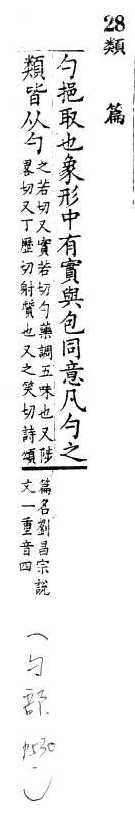 28 類篇
勺挹取也象形中有實與包同意凡勺之
類皆从勺
之若切又實若切勺藥調五味也又陟
畧切又丁歷切射質也又之笑切詩頌
篇名劉昌宗說
文一重音四
(勺部